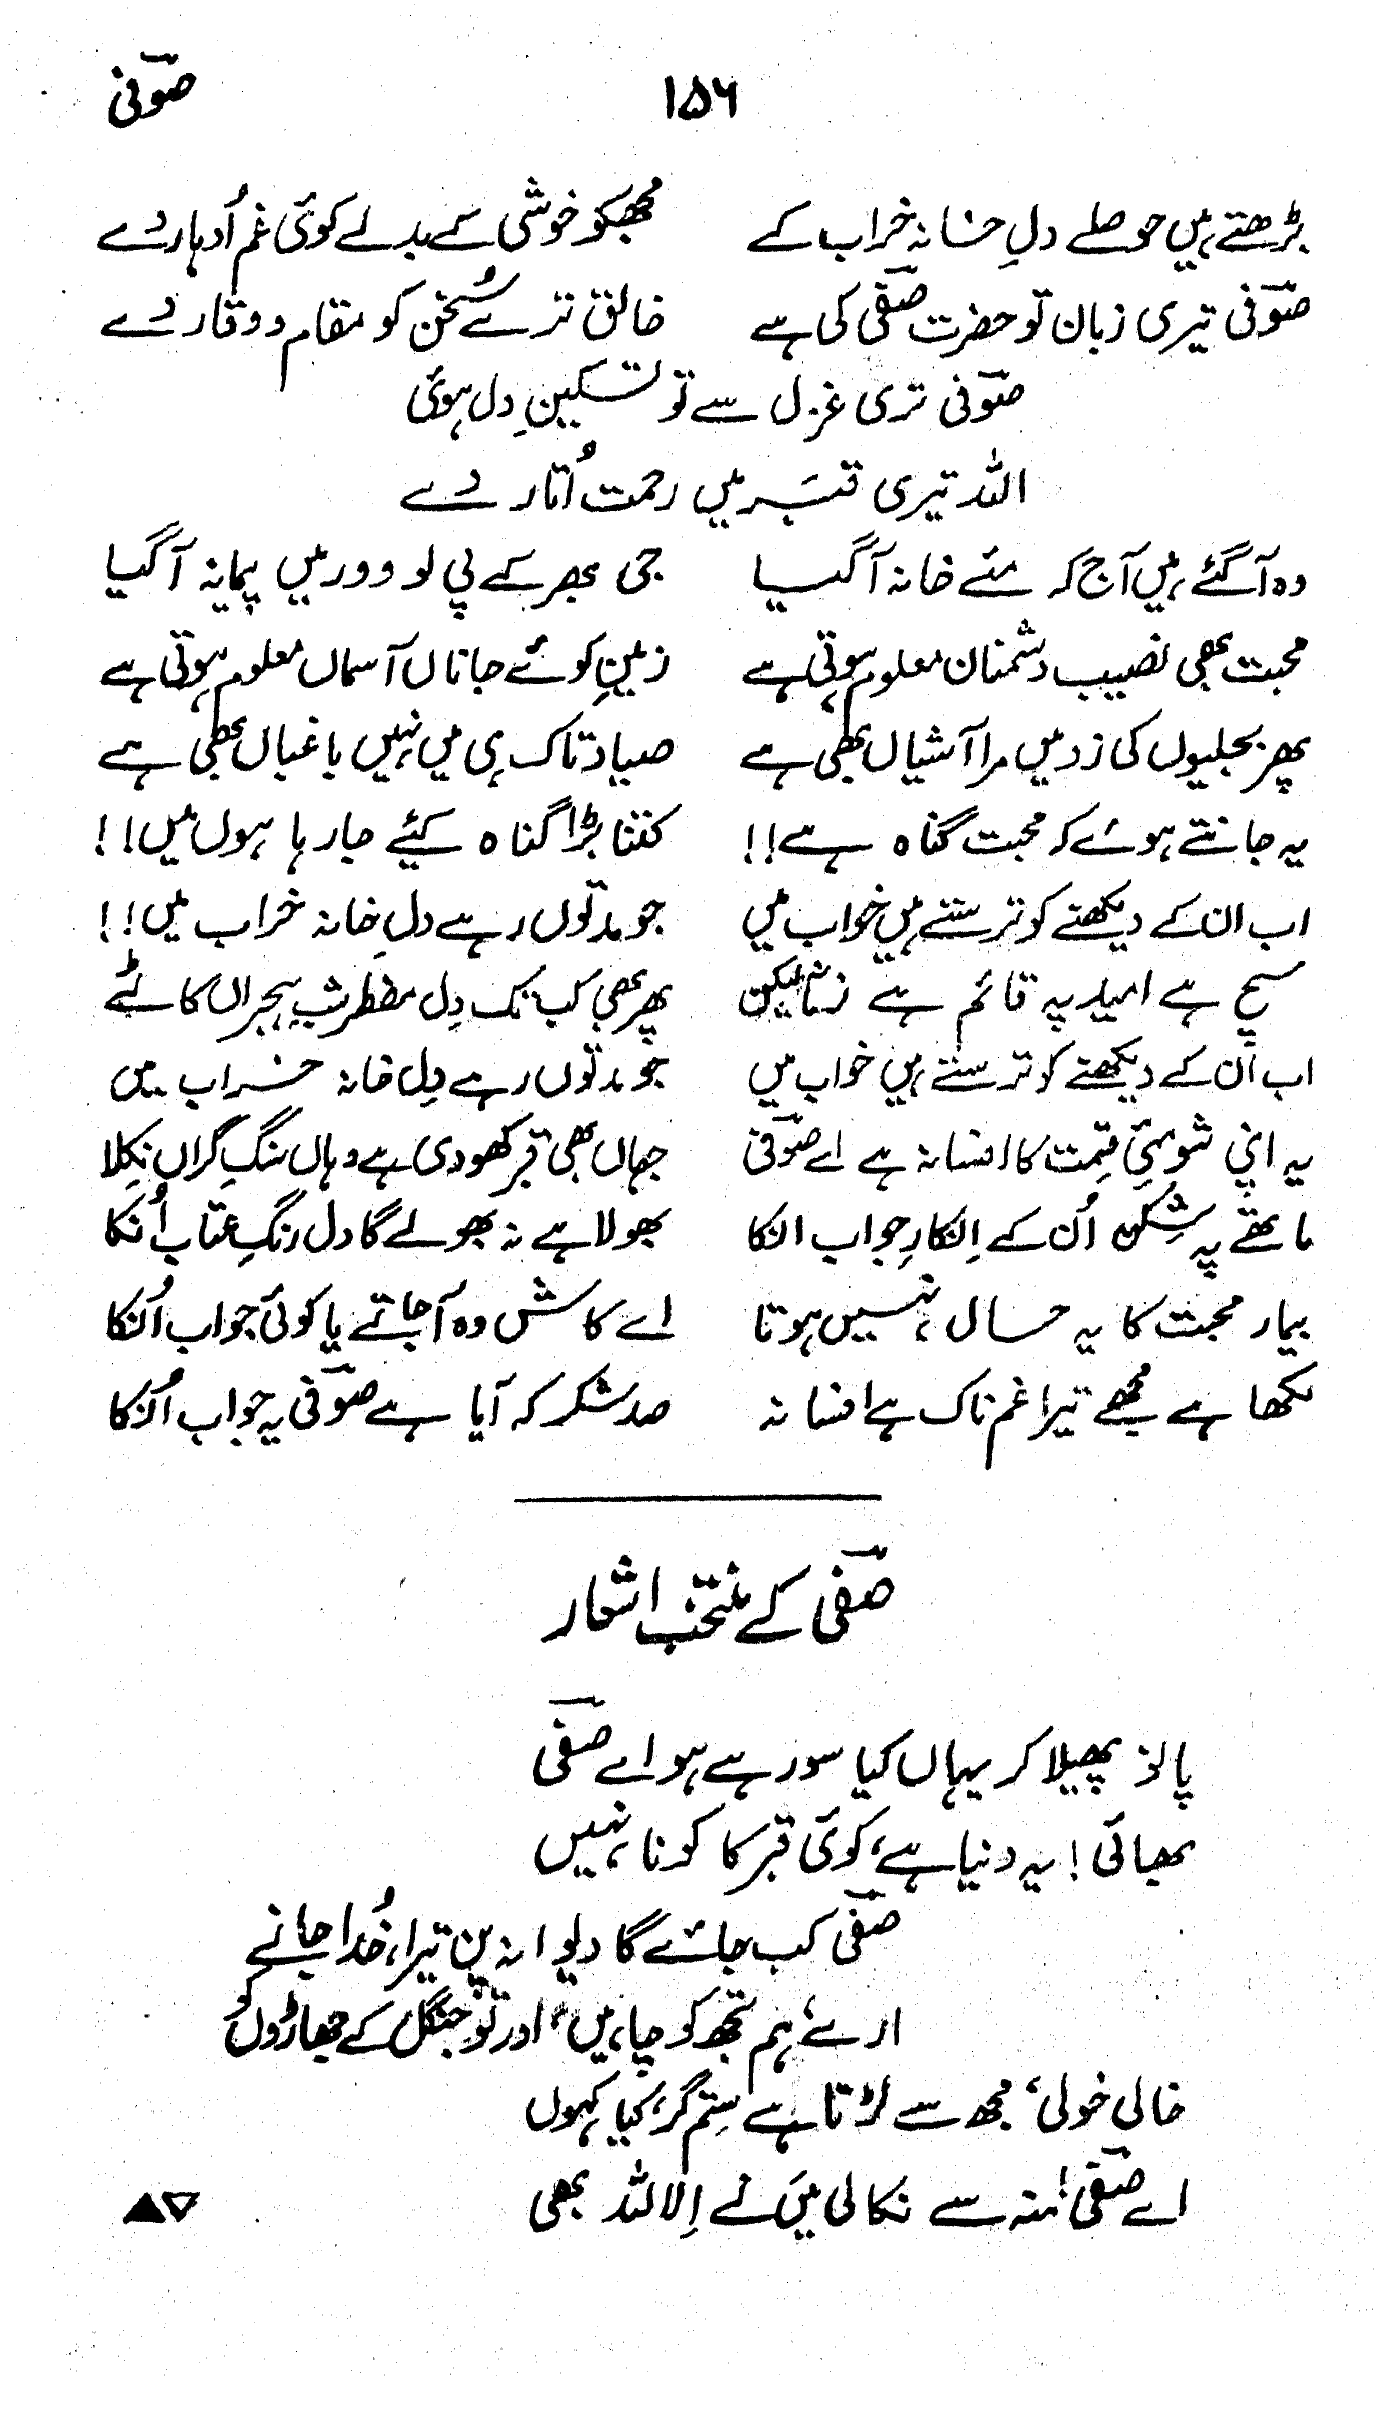 ۱۵۶ صوفی
بڑھتے ہیں حوصلے دلِ خانہ خراب کے مجھکو خوشی کے بدلے کوئی غم اُدہار دے
صوفی تیری زبان تو حضرت صفی کی ہے خالق ترے سُخن کو مقام و وقار دے
صوفی تری غزل سے تو تسکینِ دِل ہوئی
اللہ تیری قبر میں رحمت اُتار دے
وہ آگئے ہیں آج کہ مئے خانہ آگیا جی بھر کے پی لو دور میں پیمانہ آگیا
محبت بھی نصیب دشمناں معلوم ہوتی ہے زمینِ کوئے جاناں آسماں معلوم ہوتی ہے
پھر بجلیوں کی زد میں مرا آشیاں بھی ہے صیاد تاک ہی میں نہیں باغباں بھی ہے
یہ جانتے ہوئے کہ محبت گناہ ہے!! کتنا بڑا گناہ کیئے جارہا ہوں میں!!
اب ان کے دیکھنے کو ترستے ہیں خواب میں جو مدتوں رہے دلِ خانہ خراب میں!!
سچ ہے امید پہ قائم ہے لیکن پھر بھی کب تک دِل مضطر شبِ ہجراں کاٹے
اب اُن کے دیکھنے کو ترستے ہیں خواب میں جو مدتوں رہے دِل خانہ خراب میں
یہ اپنی شومئیِ قِمت کا افسانہ ہے اے صوفی جہاں بھی قبر کھودی ہے وہاں سنگِ گراں نِکلا
ماتھے پہ شِکن اُن کے اِنکارِ جواب انکا بھولا ہے نہ بھولے گا دل رنگِ عتاب اُنکا
بیمار محبت کا یہ حال نہیں ہوتا اے کاش وہ آجاتے یا کوئی جواب اُنکا
لکھا ہے مجھے تیرا غم ناک ہے افسانہ صد شکر کہ آیا ہے صوفی یہ جواب اُنکا
صفی کے منتخب اشعار
پالؤ پھیلا کر یہاں کیا سو رہے ہو اے صفی
بھائی! یہ دنیا ہے، کوئی قبر کا کونا نہیں
صفی کب جائے گا دیوانہ پن تیرا، خُدا جانے
ارے، ہم تجھ کو چاہیں، اور تو جنگل کے جھاڑوں کو
خالی خولی، مجھ سے لڑتا ہے سِتم گر، کیا کہوں
اے صفی! منہ سے نکالی میں نے اِلا للہ بھی